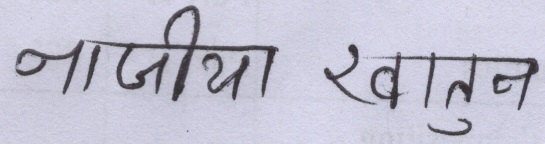 नाजीया खातुन